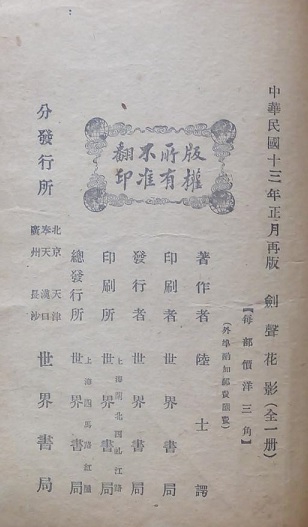 中華民國十三年正月再版
劍聲花影(全一册)
【每部價洋三角】
(外埠酌加郵費匯費)
版權所有
不准翻印
著作者 陸士諤
印刷者 世界書局
發行者 世界書局
印刷所 世界書局
上海閘北西虬江路
總發行所 世界書局
上海四馬路紅屋
分發行所 世界書局
北京 天津
奉天 漢口
廣州 長沙